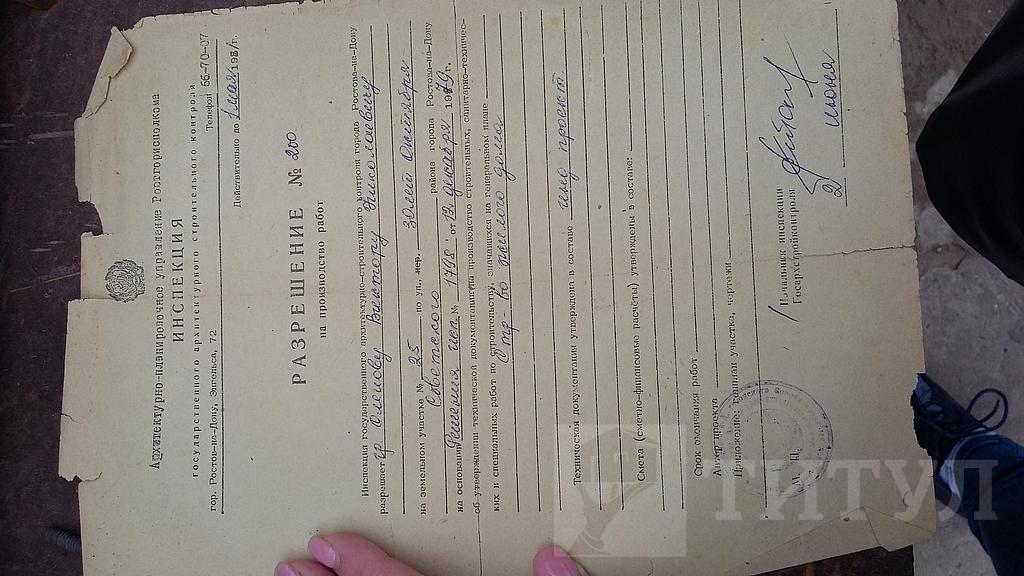 Архитектурно-планировочное управление Ростгорисполкома
ИНСПЕКЦИЯ
государственного архитектурного строительного контроля
гор. Ростов-на-Дону, Энгельса, 72 Телефон 66-70-07
Действительно по 1 мая 1981г.
РАЗРЕШЕНИЕ № 200
на производство работ
Инспекция государственного архитектурно-строительного контроля города Ростова-на-Дону
разрешает гр. Виктору Николаевичу
на земельном участке № 25 по ул., пер. 30 лет Октября
Советского района города Ростова-на-Дону
на основании Решения исп. № 1768 от 12 декабря 1979г.
об утверждении технической документации производство строительных, санитарно-техничес-
ких и специальных работ по строительству, значащихся на генеральном плане
стр-во жилого дома
Техническая документация утверждена в составе проект
Смета (сметно-финансовые расчеты) утверждены в составе:
Срок окончания работ
Автор проекта
Приложение: генплан участка, чертежи
Начальник инспекции
Госархстройконтроля
М. П.
2 июня
ТИТУЛ